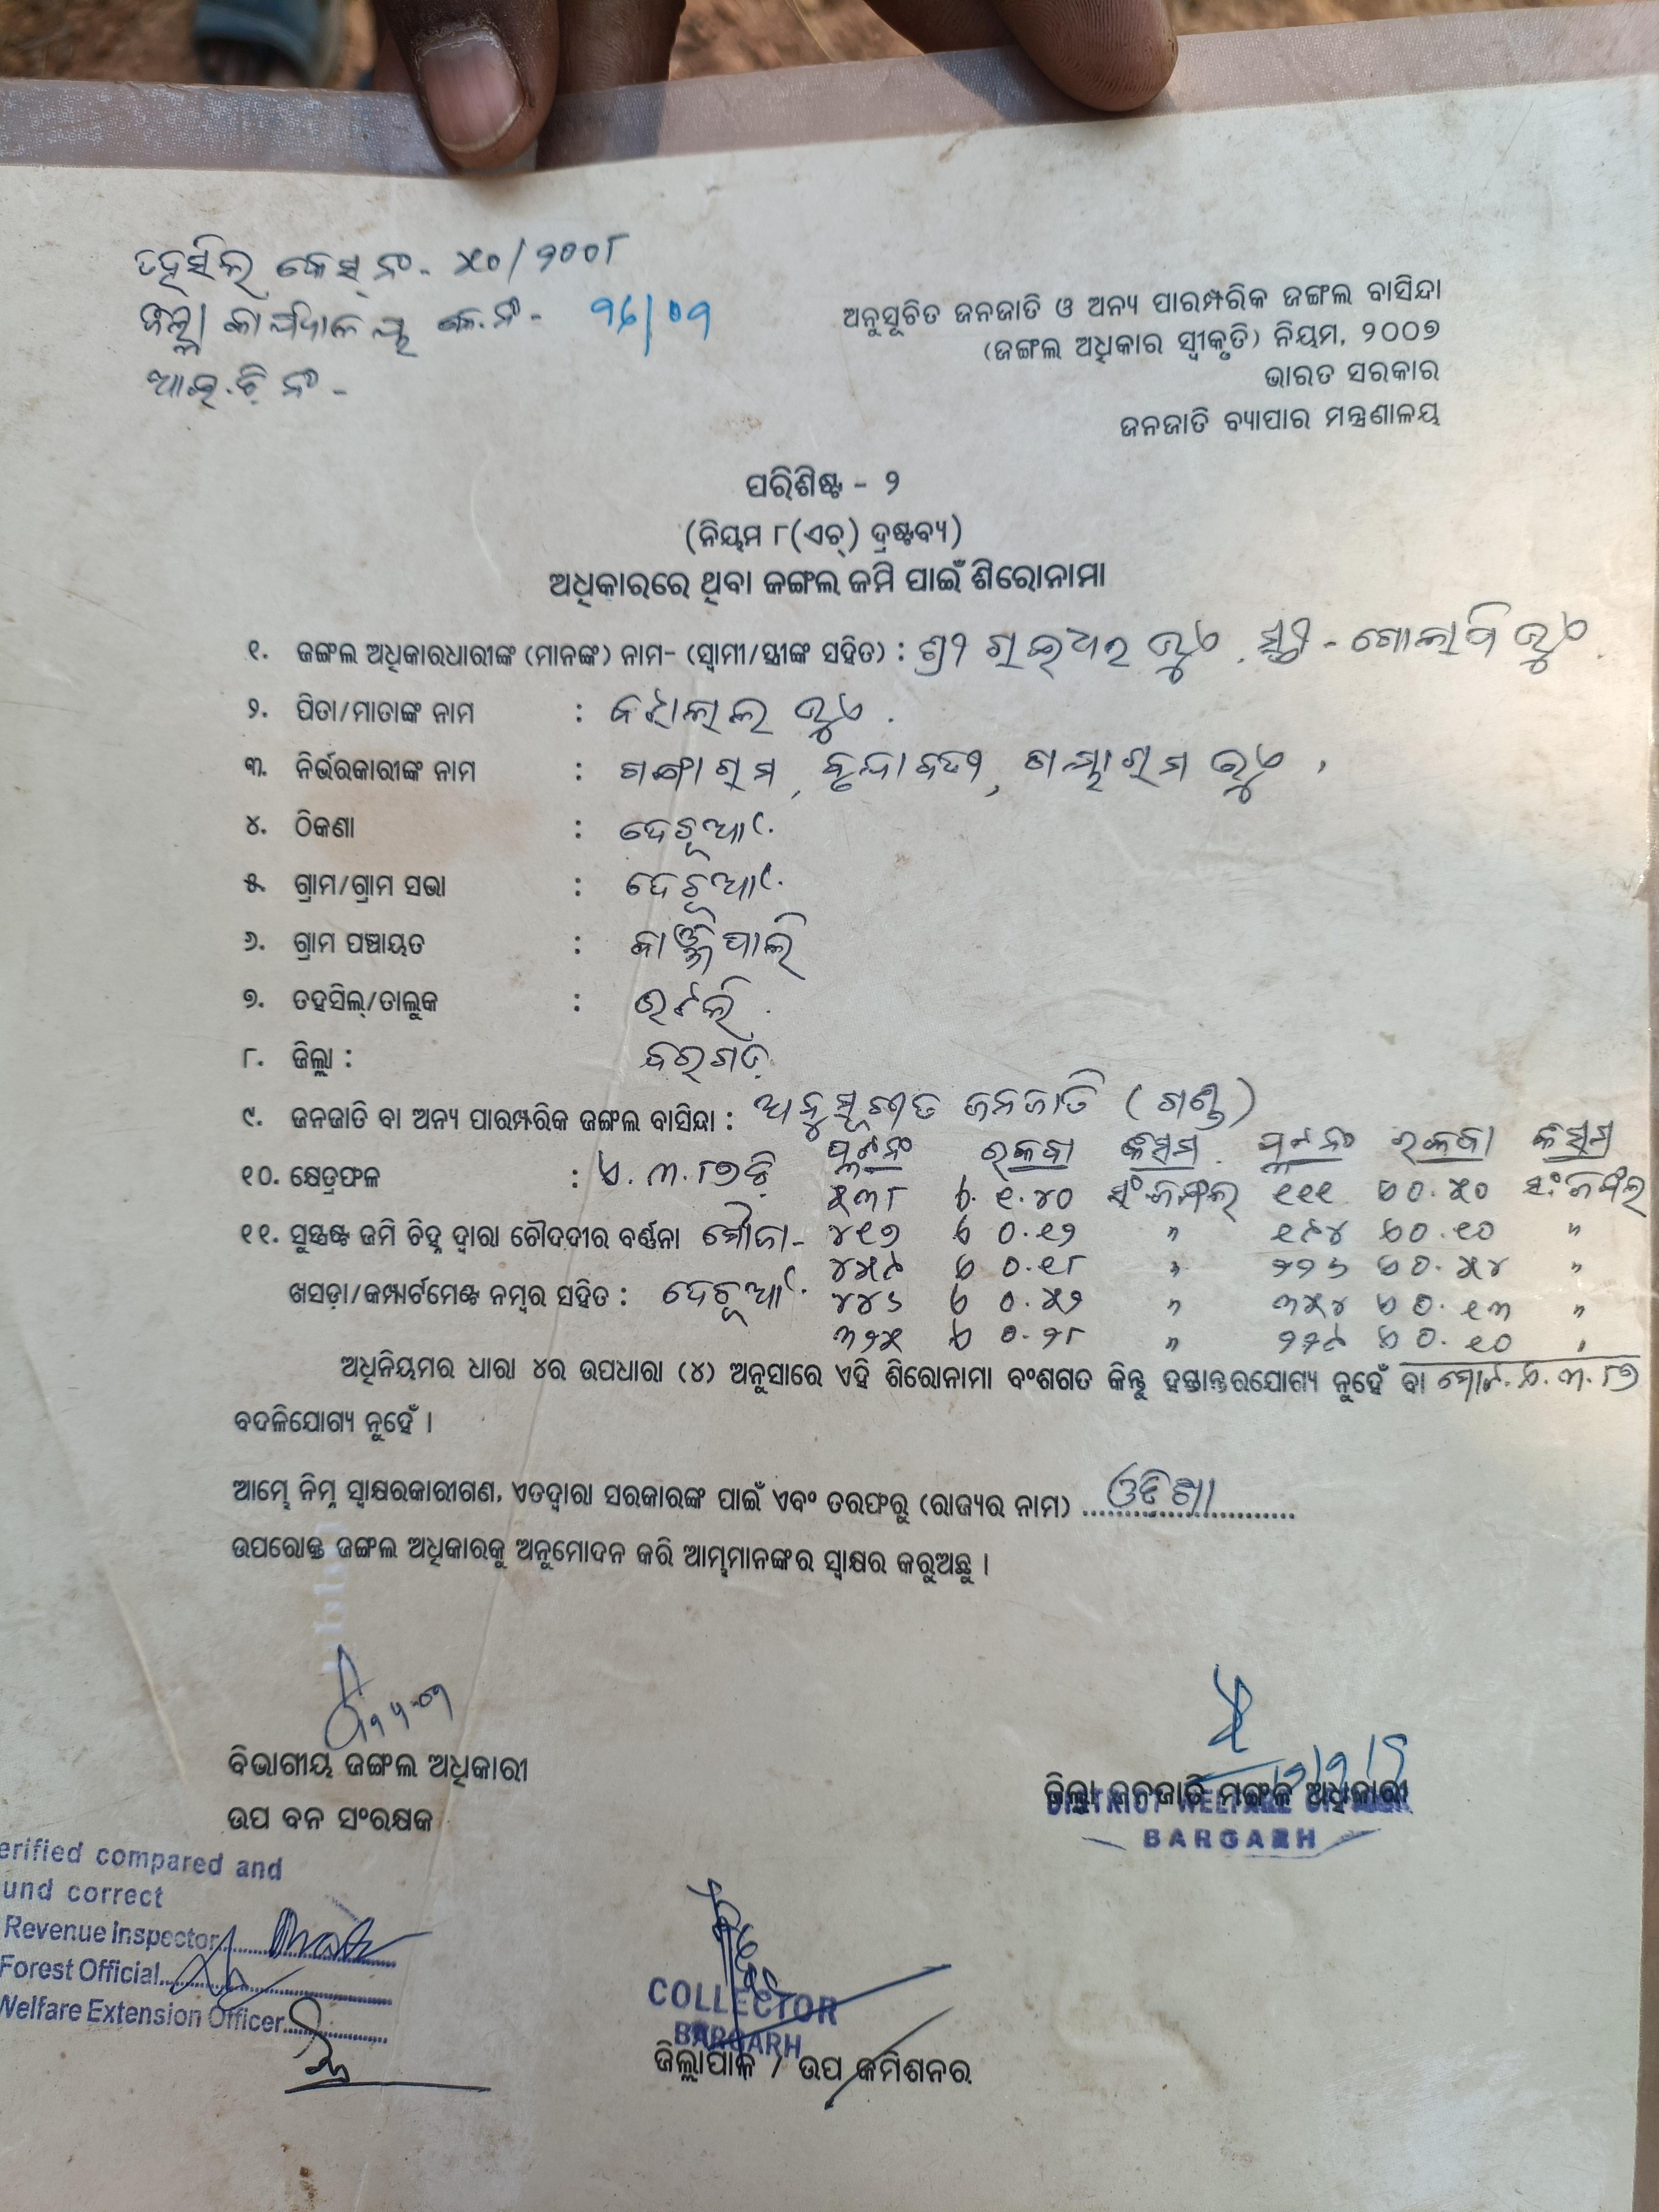 ତହସିଲ କେସ୍ ନଂ- ୪୦/୨୦୦୮
ଜିଲ୍ଲା କାର୍ଯ୍ୟାଳୟ କେ.ନଂ- ୨୬/୦୨
ଆଇ.ଡ଼ି ନଂ -
ଅନୁସୂଚିତ ଜନଜାତି ଓ ଅନ୍ୟ ପାରମ୍ପରିକ ଜଙ୍ଗଲ ବାସିନ୍ଦା
(ଜଙ୍ଗଲ ଅଧିକାର ସ୍ୱୀକୃତି) ନିୟମ, ୨୦୦୭
ଭାରତ ସରକାର
ଜନଜାତି ବ୍ୟାପାର ମନ୍ତ୍ରଣାଳୟ
ପରିଶିଷ୍ଟ - ୨
(ନିୟମ ୮(ଏଚ୍) ଦ୍ରଷ୍ଟବ୍ୟ)
ଅଧିକାରରେ ଥିବା ଜଙ୍ଗଲ ଜମି ପାଇଁ ଶିରୋନାମା
୧. ଜଙ୍ଗଲ ଅଧିକାରଧାରୀଙ୍କ (ମାନଙ୍କ) ନାମ- (ସ୍ୱାମୀ/ସ୍ତ୍ରୀଙ୍କ ସହିତ) : ଶ୍ରୀ ସ୍ତ୍ରୀ - ଗୋଲାପି
୨. ପିତା/ମାତାଙ୍କ ନାମ :
୩. ନିର୍ଭରକାରୀଙ୍କ ନାମ : ଗଙ୍ଗାରାମ, ବୃନ୍ଦାବତୀ,
୪. ଠିକଣା : ଦେଚୂଆଁ
୫. ଗ୍ରାମ/ଗ୍ରାମ ସଭା : ଦେଚୂଆଁ
୬. ଗ୍ରାମ ପଞ୍ଚାୟତ :
୭. ତହସିଲ୍/ତାଲୁକ : ଭଟଲି
୮. ଜିଲ୍ଲା : ବରଗଡ଼
୯. ଜନଜାତି ବା ଅନ୍ୟ ପାରମ୍ପରିକ ଜଙ୍ଗଲ ବାସିନ୍ଦା : ଅନୁସୂଚୀତ ଜନଜାତି (ଗଣ୍ଡ)
ପ୍ଲଟନଂ ରକବା କିସମ ପ୍ଲଟନଂ ରକବା କିସମ
୧୦. କ୍ଷେତ୍ରଫଳ : ଏ.୩.୮୭ଡ଼ି ୫୩୮ ଏ.୧.୪୦ ସଂ ଜଙ୍ଗଲ ୧୧୧ ଏ୦.୫୦ ସଂ.ଜଙ୍ଗଲ
୧୧. ସୁସ୍ପଷ୍ଟ ଜମି ଚିହ୍ନ ଦ୍ୱାରା ଚୌଦଦୀର ବର୍ଣ୍ଣନା ମୌଜା- ୪୧୭ ଏ ୦.୧୨ " ୧୯୪ ଏ୦.୧୦ "
୪୫୯ ଏ ୦.୧୮ " ୨୨୬ ଏ୦.୫୪ "
ଖସଡ଼ା/କମ୍ପାର୍ଟମେଣ୍ଟ ନମ୍ବର ସହିତ : ଦେଚୂଆଁ ୪୪୬ ଏ ୦.୫୨ " ୩୫୪ ଏ୦.୧୩ "
୩୨୫ ଏ ୦.୨୮ " ୨୨୯ ଏ୦.୧୦ "
ଅଧିନିୟମର ଧାରା ୪ର ଉପଧାରା (୪) ଅନୁସାରେ ଏହି ଶିରୋନାମା ବଂଶଗତ କିନ୍ତୁ ହସ୍ତାନ୍ତରଯୋଗ୍ୟ ନୁହେଁ ବା ମୋଟ.ଏ.୩.୮୭
ବଦଳିଯୋଗ୍ୟ ନୁହେଁ ।
ଆମ୍ଭେ ନିମ୍ନ ସ୍ୱାକ୍ଷରକାରୀଗଣ, ଏତଦ୍ୱାରା ସରକାରଙ୍କ ପାଇଁ ଏବଂ ତରଫରୁ (ରାଜ୍ୟର ନାମ) ଓଡିଶା
ଉପରୋକ୍ତ ଜଙ୍ଗଲ ଅଧିକାରକୁ ଅନୁମୋଦନ କରି ଆମ୍ଭମାନଙ୍କର ସ୍ୱାକ୍ଷର କରୁଅଛୁ ।
ବିଭାଗୀୟ ଜଙ୍ଗଲ ଅଧିକାରୀ
ଉପ ବନ ସଂରକ୍ଷକ
ଜିଲ୍ଲା ଜନଜାତି ମଙ୍ଗଳ ଅଧିକାରୀ
DISTRICT WELFARE OFFICER
BARGARH
erified compared and
und correct
Revenue Inspector
Forest Official
Welfare Extension Officer
COLLECTOR
BARGARH
ଜିଲ୍ଲାପାଳ / ଉପ କମିଶନର